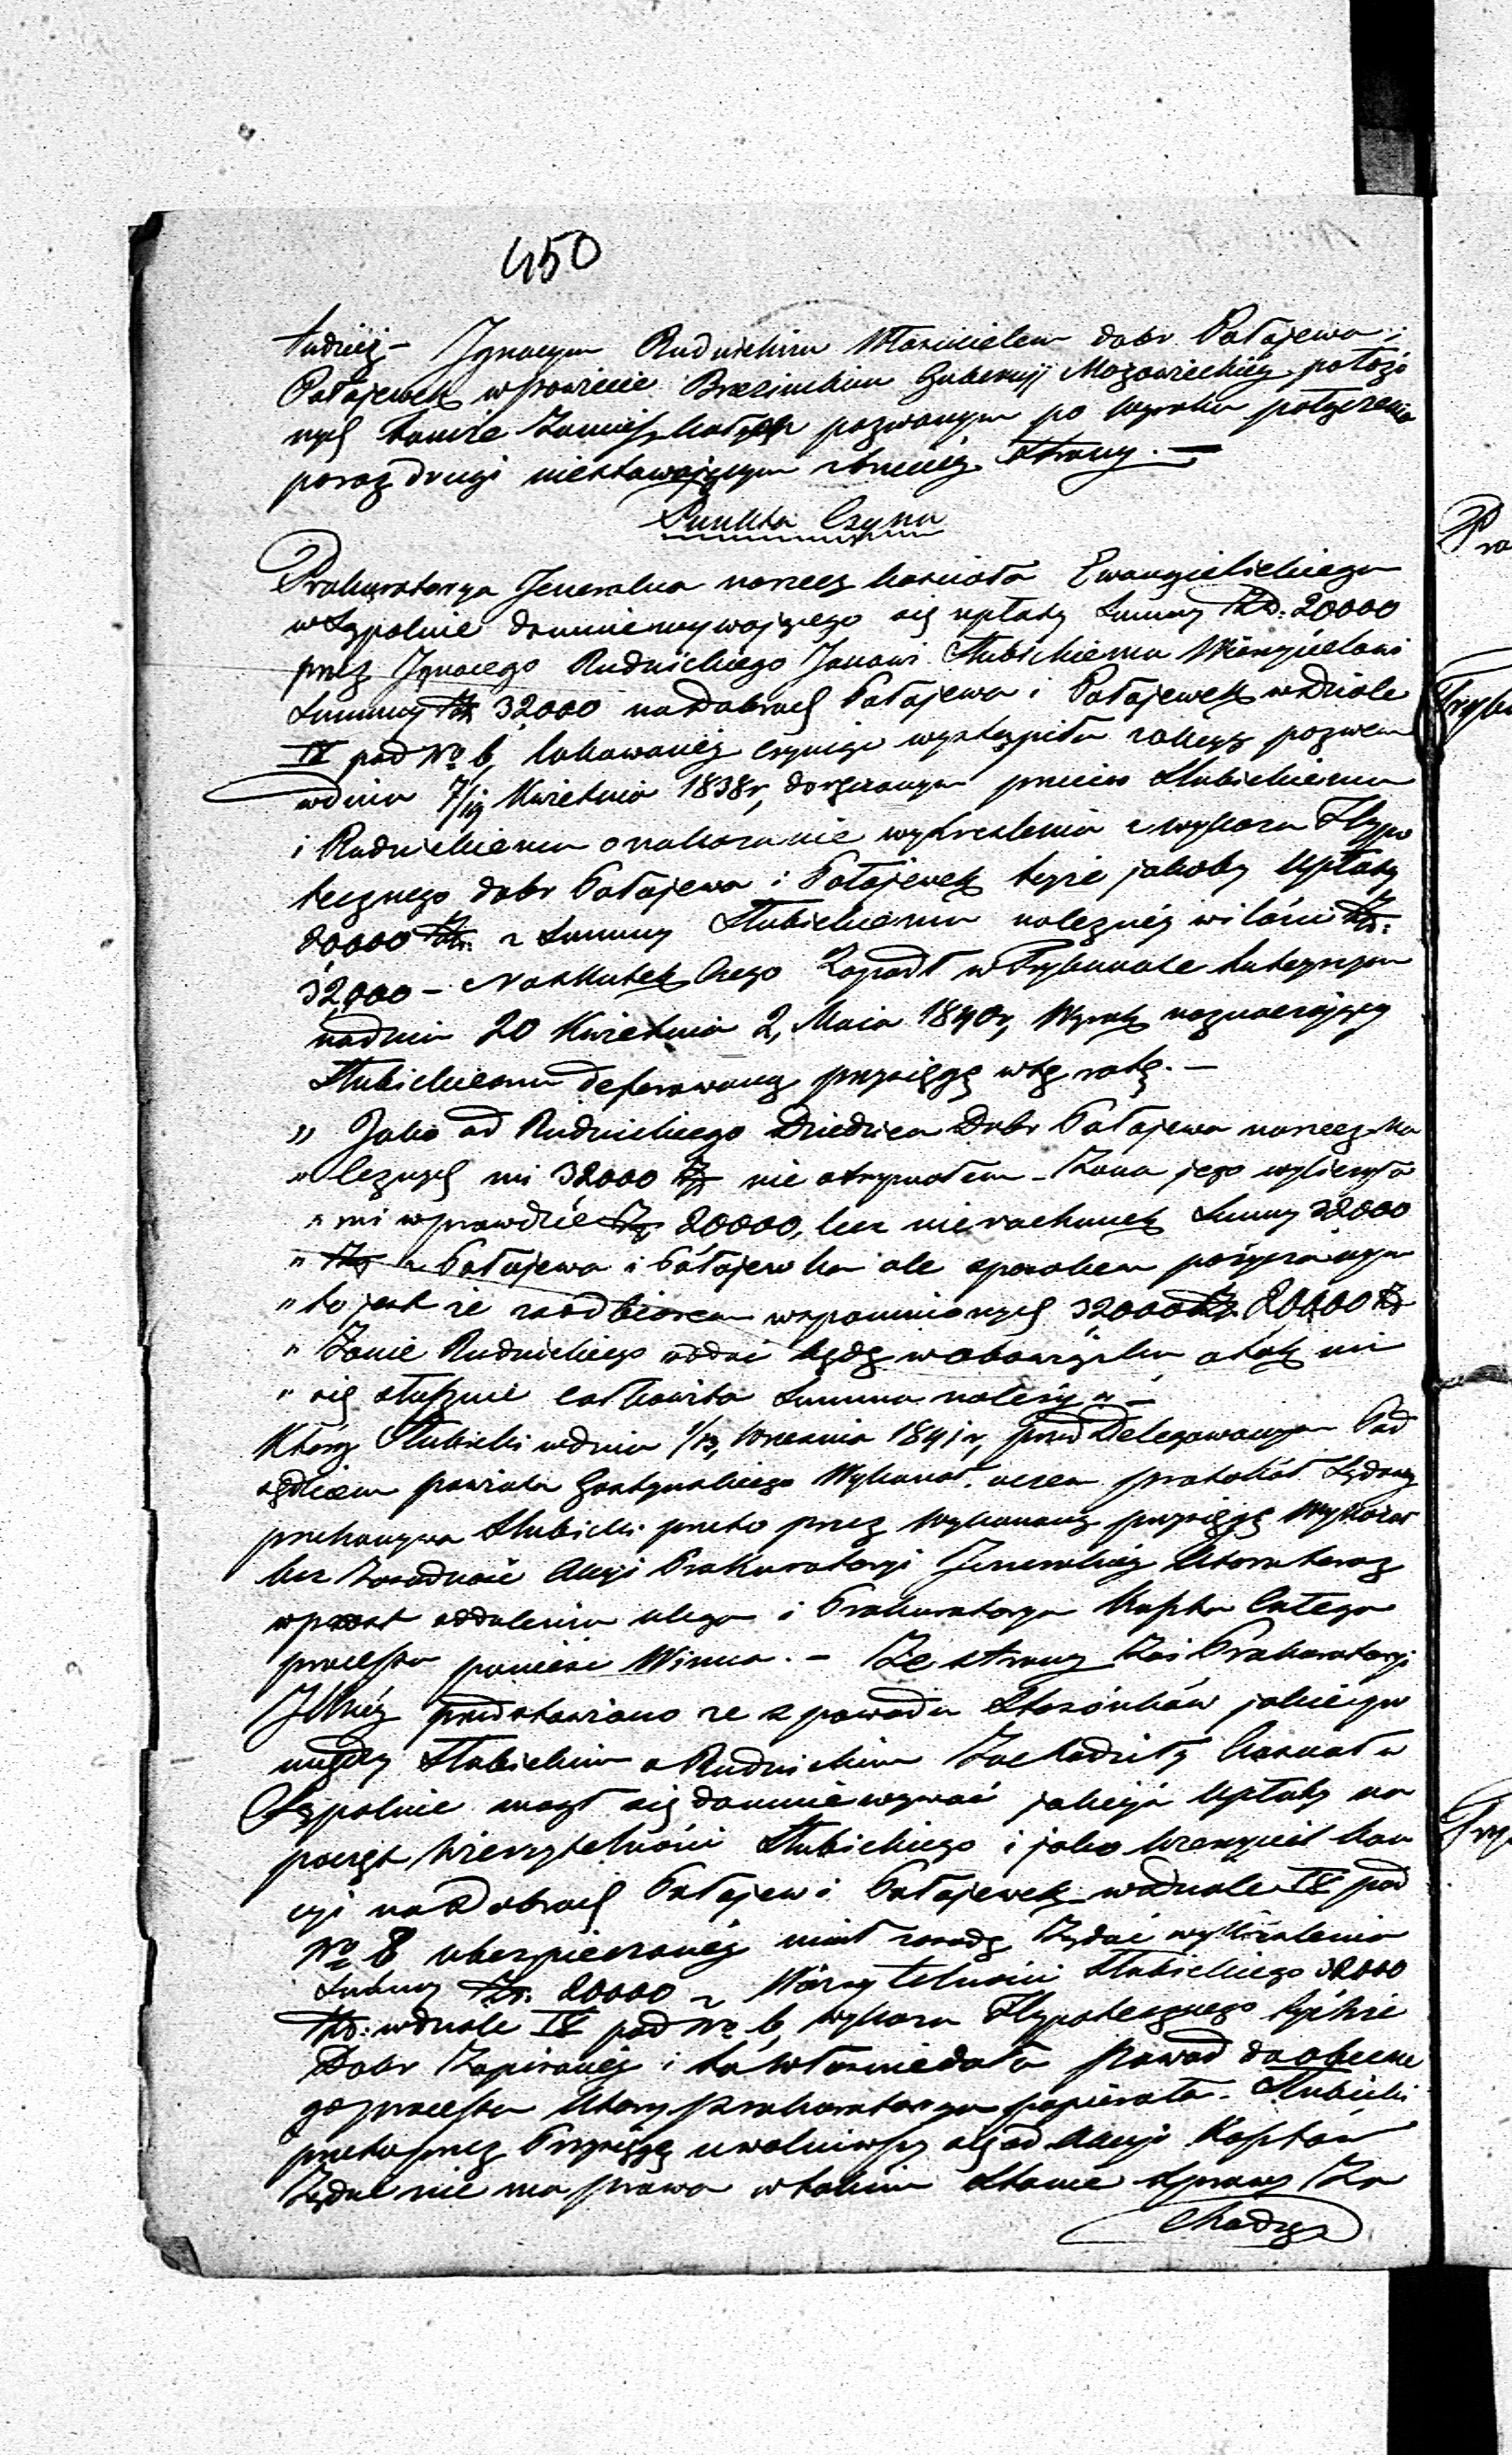 450
tudzież – Ignacym Rudnickim Właścicielem dobr Pałajewa i
Pałajewek w Powiecie Brzezinskim Gubernij Mazowieckiéj położo
nych tamże zamieszkałym pozwanym po wyroku połączenia
poraz drugi niestawającym z drugiéj strony. —
Punkta Czynu
Prokuratorya Jeneralna narzecz koscioła Ewangielickiego
w Sępolnie domniemywającego się wpłaty Summy Zł: 20000
przez Ignacego Rudnickiego Janowi Słubickiemu Wierzycielowi
Summy Zł 32000 na dobrach Pałajewa i Pałajewek w dziale
IV pod No 6, lokowanéj czyniąc wystąpiła z akcyą pozwem
w dniu 7/19 Kwietnia 1838 r, doręczonym przeciw Słubickiemu
i Rudnickiemu o nakazanie wykreslenia z wykazu Hypo
tecznego dobr Pałajewa i Pałajewek tejże jakoby wpłaty
20000 Zł. z Summy Słubickiemu należnéj w ilości Zł:
32,000 – Naskutek czego Zapadł w Trybunale tutejszym
na dniu 20 Kwietnia 2, Maia 1840 r, Wyrok naznaczający
Słubickiemu deferowaną przysięgę w tę rotę. —
„ Jako od Rudnickiego Dziedzica Dobr Pałajewa narzecz na
„ leznych mi 32000 Zł nie otrzymałem – Żona jego wyliczyła
„ mi wprawdzie Zł 20000, lecz nie na rachunek Summy 32000
„ Zł z Pałajewa i Pałajewka ale sposobem pożyczanym
„ to jest że za odbiorem wspomnionych 32,000 Zł. 20000 Zł
„ Żonie Rudnickiego oddać będę w obowiązku a tak mi
„ się słusznie całkowita Summa należy „ —
Którą Słubicki w dniu 1/13, Wrzesnia 1841 r, przed Delegowanym Pod
sędkiem powiatu Gostynskiego Wykonał, o czem protokół Sądowy
przekonywa Słubicki przeto przez wykonaną przysięgę wykazał
bez zasadność Akcyi Prokuratoryi Jeneralnéj która teraz
wprost oddaleniu ulega i Prokuratorya koszta całego
processu ponieść Winna. – Ze strony zaś Prokuratoryi
Jlnéj przedstawiono że z powodu Stosónków jakie
między Słubickim a Rudnickim Zachodziły kosciół w
Sępolnie mogł się domniemywać jakiejś wpłaty na
poczet wierzytelności Słubickiego i jako wierzyciel kau
cyi na Dobrach Pałajew i Pałajewek w dziale IV pod
No 8 ubezpieczonéj miał zasadę Żądać wykreślenia
Summy Zł: 20000 z Wierzytelności Słubickiego 32000
Zł: w dziale IV pod No 6, wykazu Hypotecznego tychże
Dobr zapisanéj i to właśnie dało powod do obecne
go processu który Prokuratorya popierała. Słubicki
przeto przez Przysięgę uwolniwszy się od Akcyi Kosztów
Żądać nie ma prawa w takim Stanie Sprawy Za
chodzą